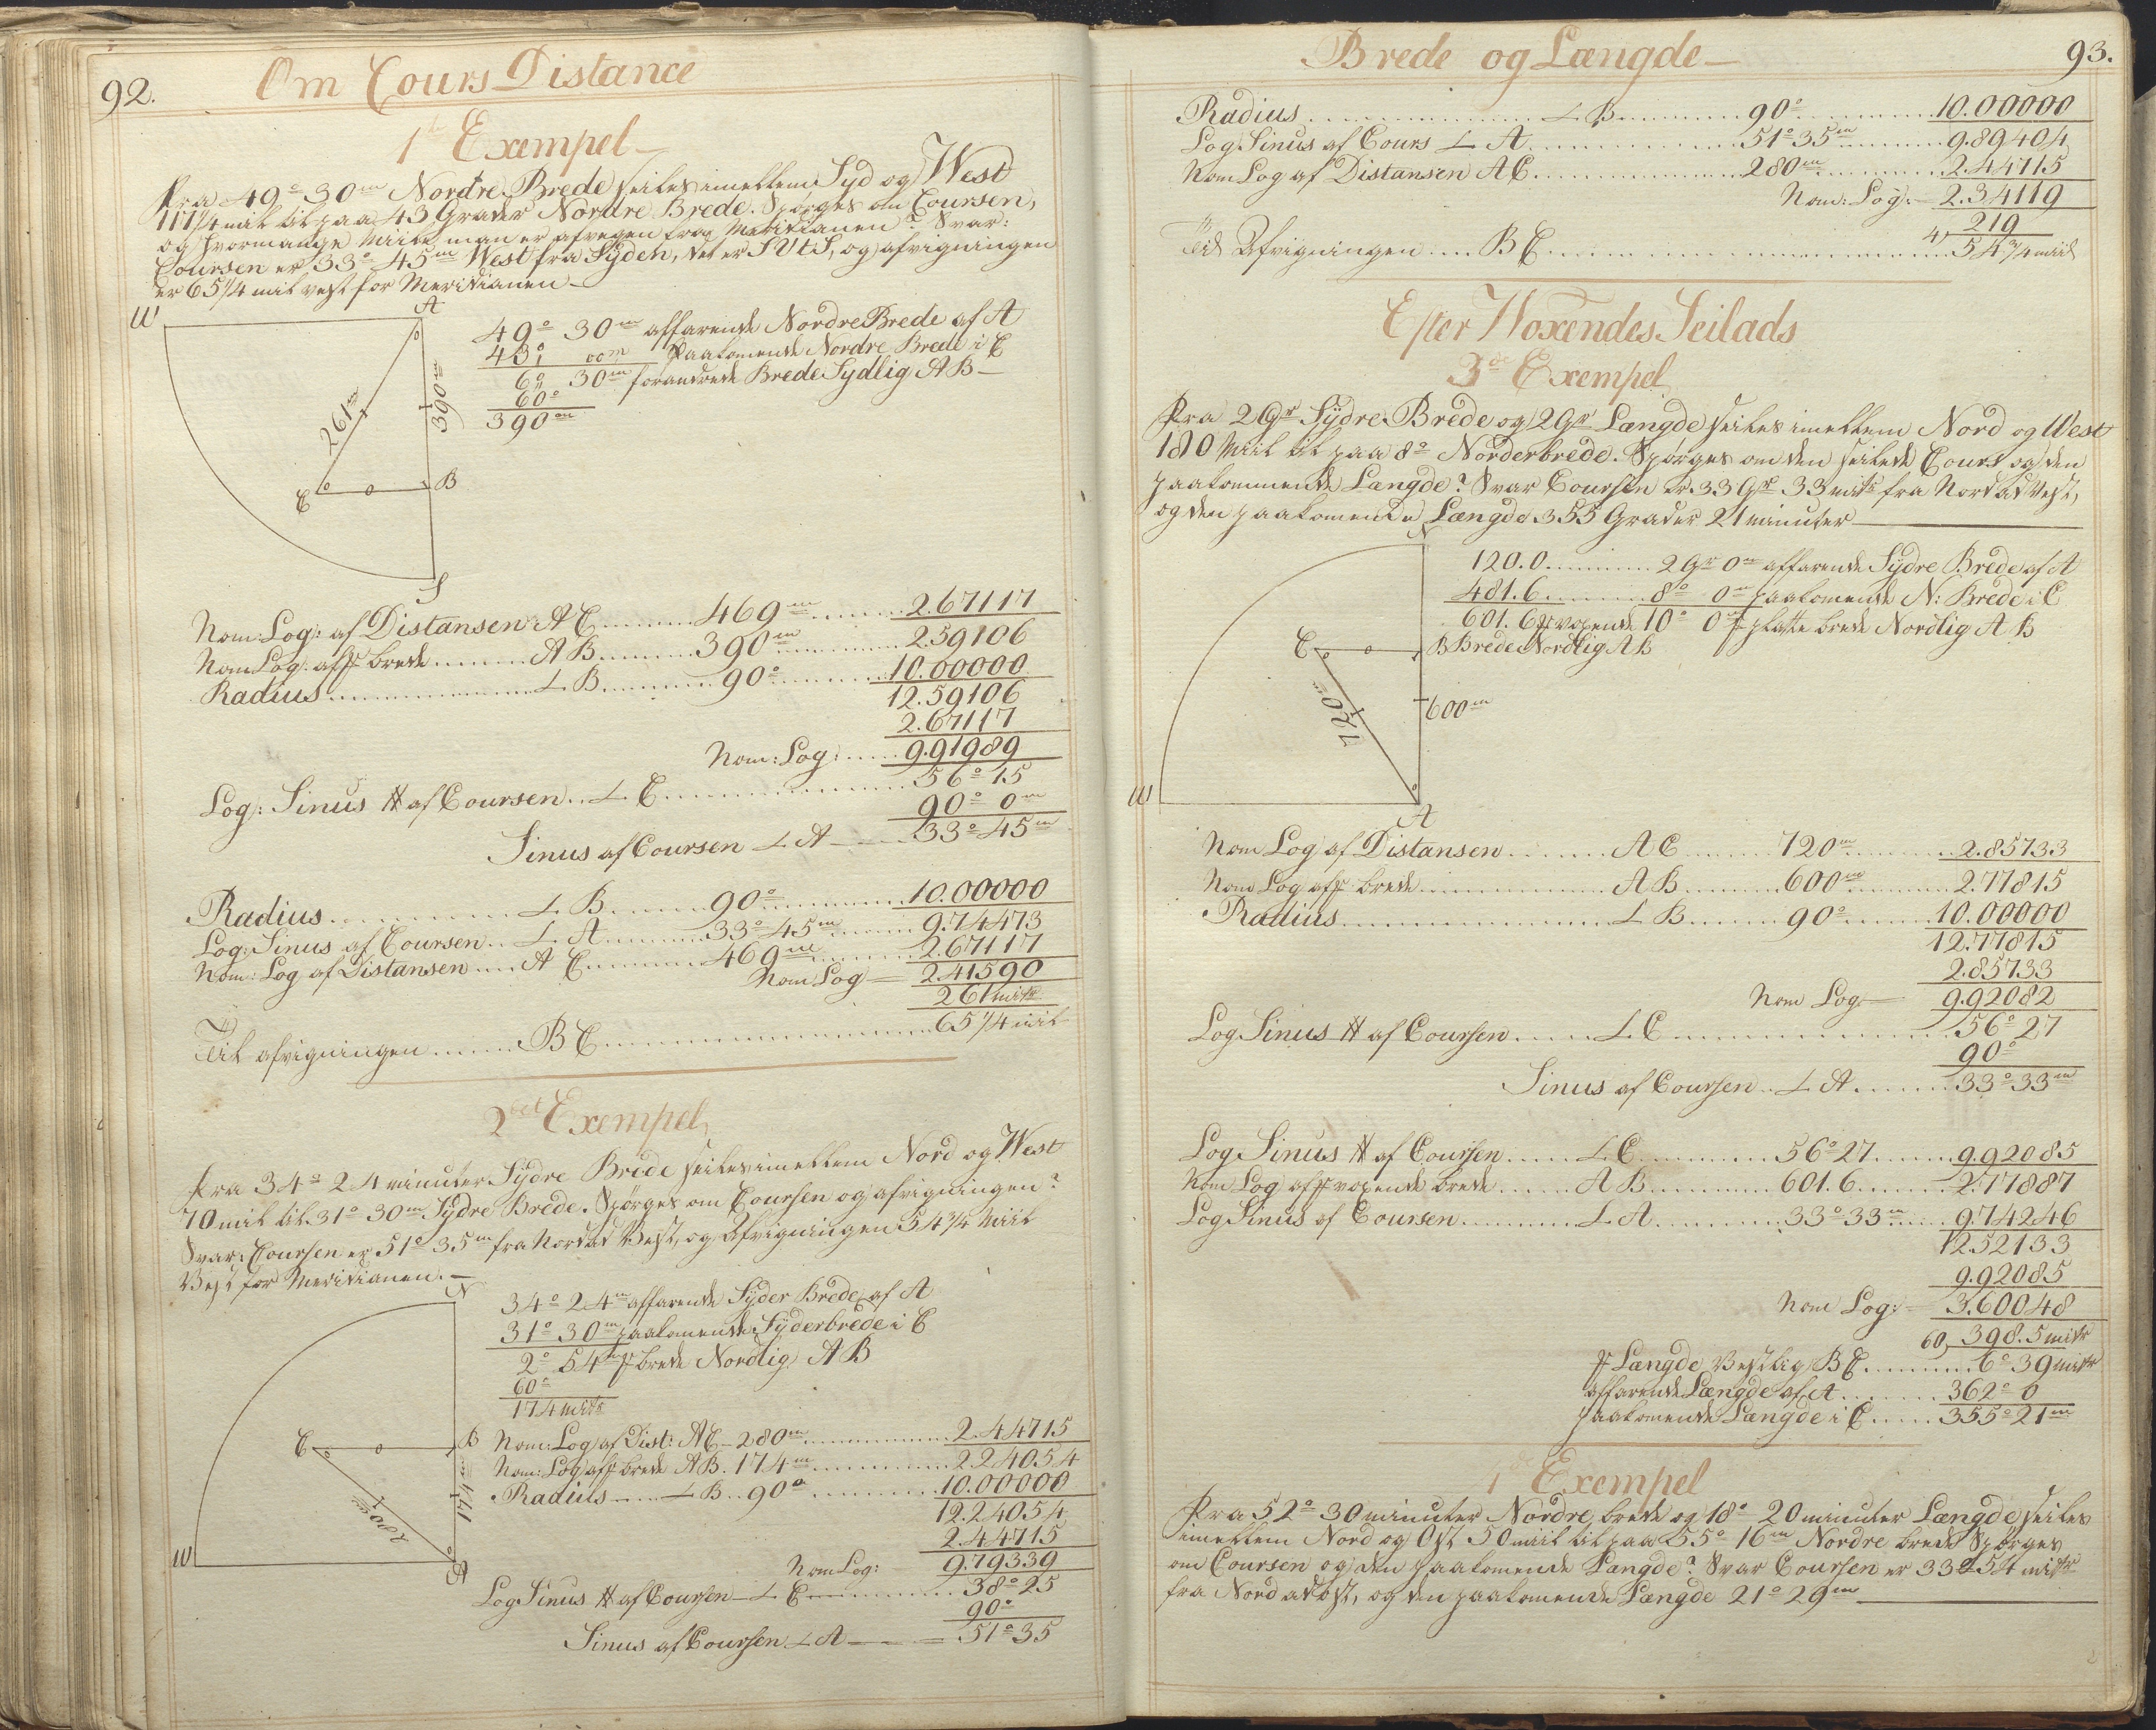 92. Om Cours Distance
1ste Exempel
Fra 49° 30m Nordre Brede seiles imellem Syd og West
117 1/4 mil til paa 43 Grader Nordre Brede. Spörges om Coursen,
og hvormange Miile man er afvegen fra Meridianen? Svar:
Coursen er 33° 45m West fra Syden, det er SVtS, og afvigningen
er 65 1/4 mil vest for Meridianen
W A
49° 30m affarende Nordre Brede af A
43° 00m Paakomende Nordre Brede i C
6° 30m forandrede Brede Sydlig AB
60°
390m
261m
390m
C B
S
Nom: Log: af Distansen AC 469m 2.67117
Nom Log: af brede AB 390m 2.59106
Radius L B 90° 10.00000
12.59106
2.67117
Nom: Log: 9.91989
Log: Sinus af Coursen L C 56° 15
90° 0m
Sinus af Coursen L A 33° 45m
Radius L B 90° 10.00000
Log: Sinus af Coursen L A 33° 45m 9.74473
Nom: Log af Distansen A C 469m 2.67117
Nom Log 2.41590
261 mitr
Til afvigningen BC 65 1/4 mil
2det Exempel
Fra 34° 24 minuter Sydre Brede seiles imellem Nord og West
70 mil til 31° 30m Sydre Brede. Spörges om Coursen og afvigningen?
Svar: Coursen er 51° 35m fra Nord ad Vest, og Afvigningen 54 3/4 Miil
Vest for Meridianen.
N
34° 24m affarende Syder Brede af A
31° 30m paakomende Syderbrede i C
2° 54m brede Nordlig AB
60°
174 mitr
C B
Nom: Log af Dist: AC 280m 2.44715
Nom: Log af brede AB. 174m 2.24054
Radius L B 90° 10.00000
12.24054
2.44715
Nom Log: 9.79339
174m
280m
W
Log Sinus af Coursen L C 38° 25
90°
Sinus af Coursen L A 51° 35
Brede og Længde 93.
Radius L B 90° 10.00000
Log Sinus af Cours L A 51° 35m 9.89404
Nom Log af Distansen AC 280m 2.44715
Nom: Log: 2.34119
4) 219
Til Afvigningen BC 54 3/4 miil
Efter Woxendes Seilads
3de Exempel
Fra 2 Gr Sydre Brede og 2 Gr Længde seiles imellem Nord og West
180 Miil til paa 8° Norderbrede. Spörges om den seilede Cours og den
paakommende Længde? Svar Coursen er 33 Gr 33 mitr fra Nord ad Vest,
og den paakomende Længde 355 Grader 21 minuter
N
120.0 2 Gr 0m affarende Sydre Brede af A
481.6 8° 0m paakomende N: Brede i C
601.6 voxende 10° 0m platte brede Nordlig AB
C B Brede Nordlig AB
720m
600m
W
A
Nom Log af Distansen AC 720m 2.85733
Nom Log af brede AB 600m 2.77815
Radius L B 90° 10.00000
12.77815
2.85733
Nom Log 9.92082
Log Sinus af Coursen L C 56° 27
90°
Sinus af Coursen L A 33° 33m
Log Sinus af Coursen L C 56° 27 9.92085
Nom Log af voxende brede AB 601.6 2.77887
Log Sinus af Coursen L A 33° 33m 9.74246
12.52133
9.92085
Nom Log: 3.60048
60) 398.5 mitr
Længde Vestlig BC 6° 39 mitr
affarende Længde af A 362° 0
paakomende Længde i C 355° 21m
1de Exempel
Fra 52° 30 minuter Nordre brede og 18° 20 minuter Længde seiles
imellem Nord og Ost 50 miil til paa 55° 16m Nordre brede Spörges
om Coursen og den paakomende Længde? Svar Coursen er 33° 54 mitr
fra Nord ad ost, og den paakomende Længde 21° 29m